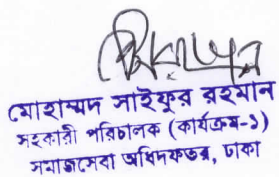 মোহাম্মদ সাইফুর রহমান
সহকারী পরিচালক (কার্যক্রম-১)
সমাজসেবা অধিদফতর, ঢাকা